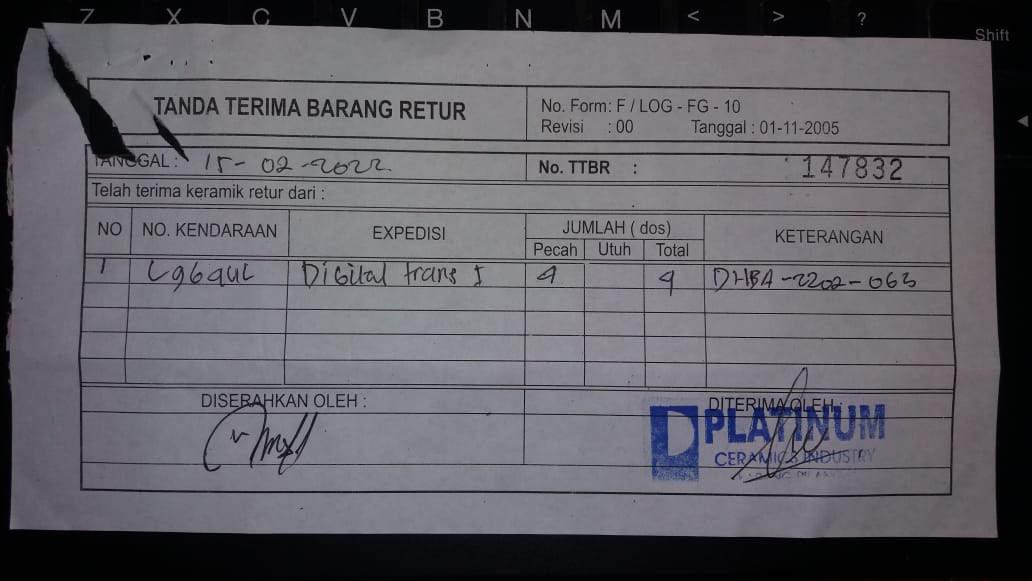 Z X C V B N M < > ?
Shift
TANDA TERIMA BARANG RETUR
No. Form: F / LOG - FG - 10
Revisi : 00 Tanggal : 01-11-2005
TANGGAL : 15-02-2022
No. TTBR : 147832
Telah terima keramik retur dari :
NO NO. KENDARAAN EXPEDISI JUMLAH ( dos) KETERANGAN
Pecah Utuh Total
1 Digital trans 4 4 DHBA-2202-063
DISERAHKAN OLEH : DITERIMA OLEH :
PLATINUM
CERAMICS INDUSTRY